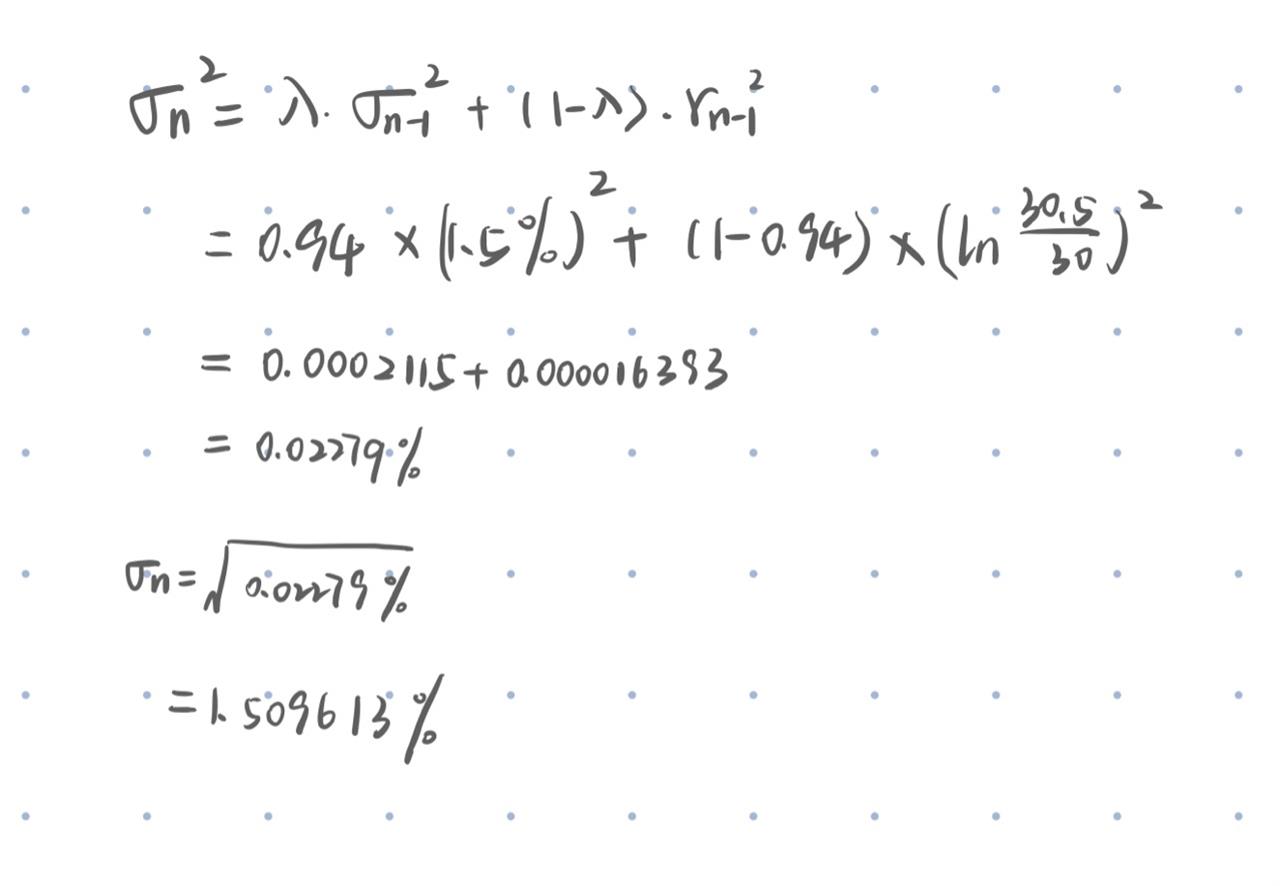 σn² = λ·σn-1² + (1-λ)·rn-1²
= 0.94 × (1.5%)² + (1-0.94) × (ln 30.5/30)²
= 0.0002115 + 0.000016393
= 0.02279%
σn = √0.02279%
= 1.509613%